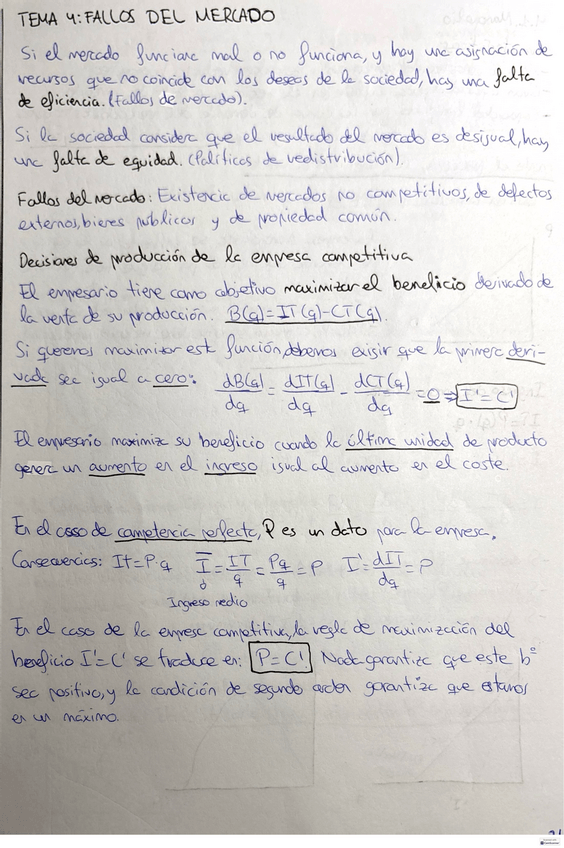 TEMA 4: FALLOS DEL MERCADO
Si el mercado funciona mal o no funciona, y hay una asignación de
recursos que no coincide con los deseos de la sociedad, hay una falta
de eficiencia. (Fallos de mercado).
Si la sociedad considera que el resultado del mercado es desigual, hay
una falta de equidad. (Políticas de redistribución).
Fallos del mercado: Existencia de mercados no competitivos, de defectos
externos, bienes públicos y de propiedad común.
Decisiones de producción de la empresa competitiva
El empresario tiene como objetivo maximizar el beneficio derivado de
la venta de su producción. B(q)=IT(q)-CT(q).
Si queremos maximizar esta función, debemos exigir que la primera deri-
vada sea igual a cero: dB(q)/dq = dIT(q)/dq - dCT(q)/dq = 0 ⇒ I'=C'
El empresario maximiza su beneficio cuando la última unidad de producto
genera un aumento en el ingreso igual al aumento en el coste.
En el caso de competencia perfecta, P es un dato para la empresa.
Consecuencias: It=P·q Ī=IT/q=Pq/q=P I'=dIT/dq=P
Ingreso medio
En el caso de la empresa competitiva, la regla de maximización del
beneficio I'=C' se traduce en: P=C'. Nada garantiza que este bº
sea positivo, y la condición de segundo orden garantiza que estamos
en un máximo.